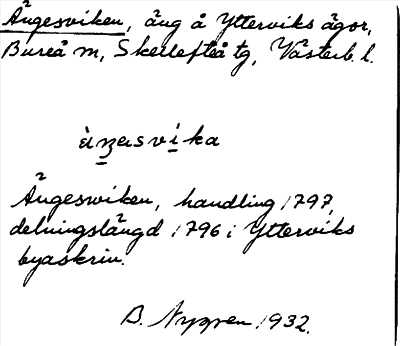 Ängesviken, äng å Ytterviks ägor,
Bureå m, Skellefteå tg, Västerb. l.
Ängeswiken, handling 1797,
delningslängd 1796 i Ytterviks
byaskrin.
B. Nygren 1932.